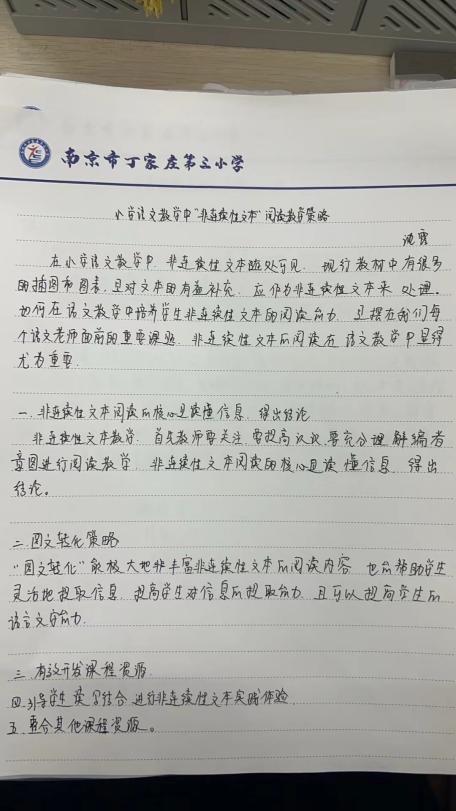 南京市丁家庄第三小学
小学语文教学中“非连续性文本”阅读教学策略
沈霞
在小学语文教学中，非连续性文本随处可见，现行教材中有很多
的插图和图表，且对文本的有益补充，应作为非连续性文本来处理。
如何在语文教学中培养学生非连续性文本的阅读能力，是摆在我们每
个语文老师面前的重要课题，非连续性文本的阅读在语文教学中显得
尤为重要。
一、非连续性文本阅读的核心是读懂信息，得出结论
非连续性文本教学，首先教师要关注，要提高认识，要充分理解编者
意图进行阅读教学，非连续性文本阅读的核心是读懂信息，得出
结论。
二、图文转化策略
“图文转化”能极大地丰富非连续性文本的阅读内容，也能帮助学生
灵活地提取信息，提高学生对信息的提取能力，且可以提高学生的
语言文字能力。
三、有效开发课程资源
四、引导学生读写结合，进行非连续性文本实践体验
五、整合其他课程资源。